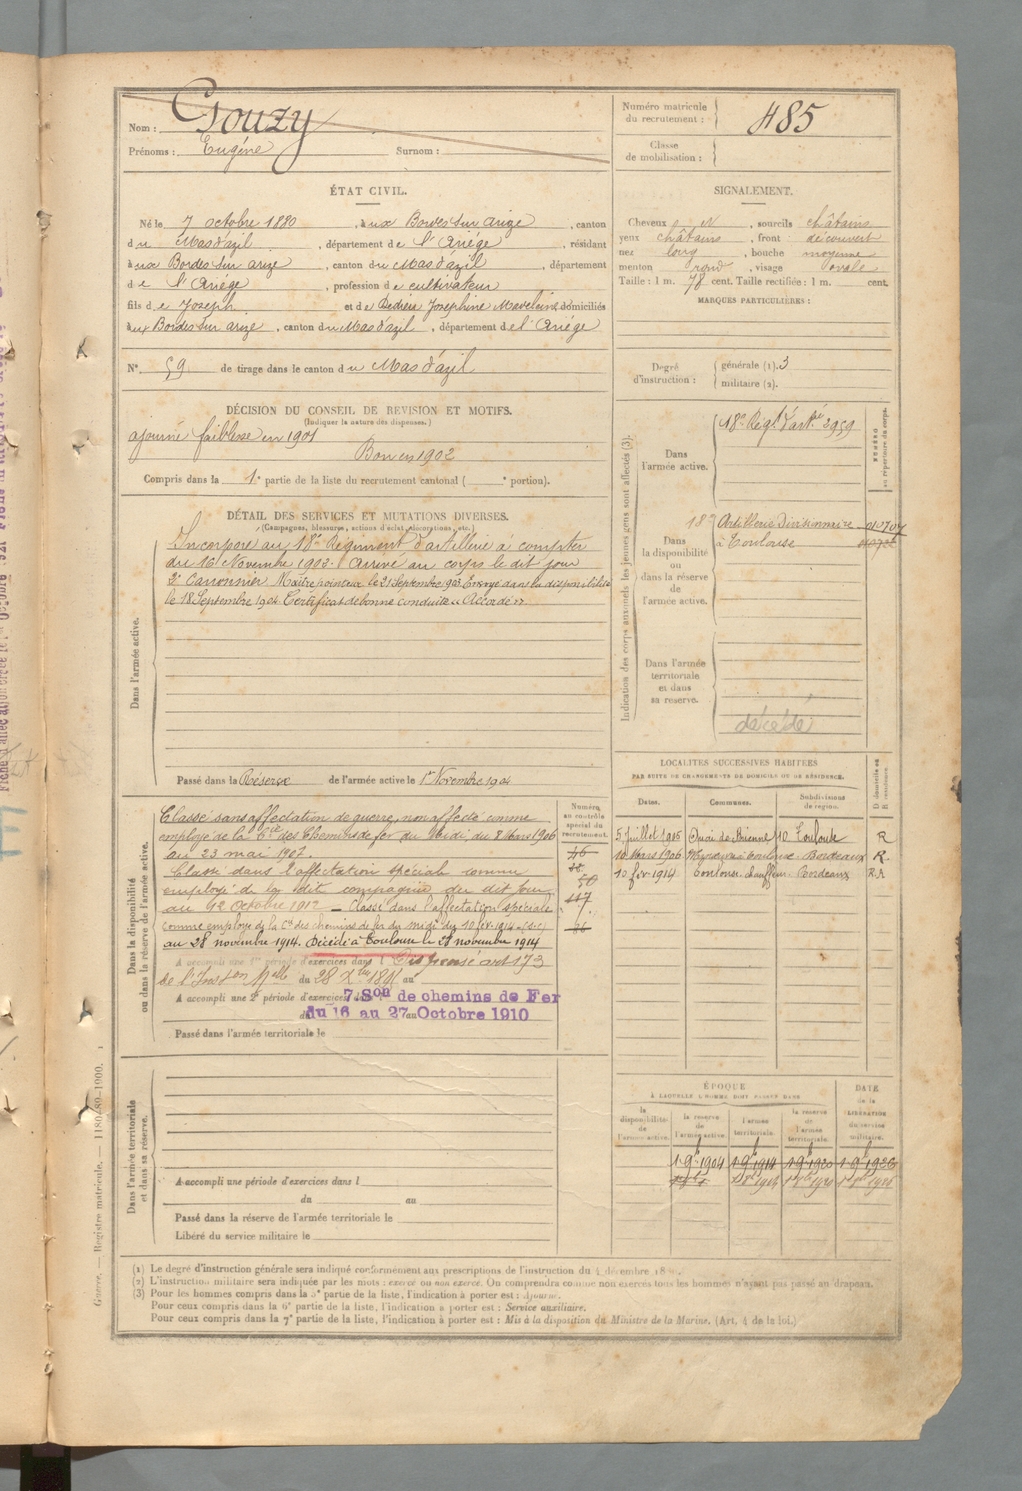 Nom : Gouzy
Prénoms : Eugène Surnom :
Numéro matricule du recrutement : 485
Classe de mobilisation :
ÉTAT CIVIL.
Né le 7 octobre 1880, à ux Bordes sur arize, canton
du Mas d'azil, département de l'Ariége, résidant
à ux Bordes sur arize, canton du Mas d'azil, département
de l'Ariége, profession de cultivateur
fils de Joseph et de Josephine Madeleine domiciliés
à ux Bordes sur arize, canton du Mas d'azil, département de l'Ariége
N° 59 de tirage dans le canton du Mas d'azil
SIGNALEMENT.
Cheveux N, sourcils châtains
yeux châtains, front découvert
nez long, bouche moyenne
menton rond, visage ovale
Taille : 1 m. 78 cent. Taille rectifiée : 1 m. cent.
MARQUES PARTICULIÈRES :
Degré d'instruction : générale (1). 3
militaire (2).
DÉCISION DU CONSEIL DE REVISION ET MOTIFS.
(Indiquer la nature des dispenses.)
ajourné faiblesse en 1901
Bon en 1902
Compris dans la 1e partie de la liste du recrutement cantonal ( e portion).
DÉTAIL DES SERVICES ET MUTATIONS DIVERSES.
(Campagnes, blessures, actions d'éclat, décorations, etc.)
Dans l'armée active.
Incorporé au 18e Régiment d'artillerie à compter
du 16 Novembre 1903. Arrivé au corps le dit jour
2e Canonnier Maître pointeur le 21 Septembre 1903. Envoyé dans la disponibilité
le 18 Septembre 1904 Certificat de bonne conduite "Accordé"
Passé dans la Réserve de l'armée active le 1er Novembre 1904
Indication des corps auxquels les jeunes gens sont affectés (3).
NUMÉRO au répertoire du corps.
Dans l'armée active.
18e Régt d'artie 3959
Dans la disponibilité ou dans la réserve de l'armée active.
18e Artillerie Divisionnaire
à Toulouse
Dans l'armée territoriale et dans sa réserve.
décédé
Dans la disponibilité ou dans la réserve de l'armée active.
Classé sans affectation de guerre, non affecté comme
employé de la Cie des Chemins de fer du midi, du 8 Mars 1906
au 23 mai 1907.
Classé dans l'affectation spéciale comme
employé de la dite compagnie du dit jour
au 12 Octobre 1912 - Classé dans l'affectation spéciale
comme employé de la Cie des chemins de fer du midi du 10 fév. 1914 (s.c)
au 28 novembre 1914. Décédé à Toulouse le 28 novembre 1914
A accompli une 1re période d'exercices dans l Dispensé art 173
de l'Inston Melle du 28 Xbre 1895 au
A accompli une 2e période d'exercices dans
7 Son de chemins de Fer
du 16 au 27 Octobre 1910
Passé dans l'armée territoriale le
Numéro au contrôle spécial du recrutement.
46
50
117
LOCALITÉS SUCCESSIVES HABITÉES
PAR SUITE DE CHANGEMENTS DE DOMICILE OU DE RÉSIDENCE.
Dates. Communes. Subdivisions de région. D domicile ou R résidence
5 Juillet 1905 Quai de Brienne 10 Toulouse R
10 Mars 1906 Toulouse Bordeaux R.
10 fév 1914 Toulouse, chauffeur Bordeaux R.A
ÉPOQUE
À LAQUELLE L'HOMME DOIT PASSER DANS
DATE de la LIBÉRATION du service militaire.
la disponibilité de l'armée active. la réserve de l'armée active. l'armée territoriale. la réserve de l'armée territoriale.
1 9bre 1904 1 9bre 1914 1 9bre 1920 1 9bre 1926
Dans l'armée territoriale et dans sa réserve.
A accompli une période d'exercices dans l
du au
Passé dans la réserve de l'armée territoriale le
Libéré du service militaire le
(1) Le degré d'instruction générale sera indiqué conformément aux prescriptions de l'instruction du 4 décembre 18
(2) L'instruction militaire sera indiquée par les mots : exercé ou non exercé. On comprendra comme non exercés tous les hommes n'ayant pas passé au drapeau.
(3) Pour les hommes compris dans la 5e partie de la liste, l'indication à porter est : Ajourné.
Pour ceux compris dans la 6e partie de la liste, l'indication à porter est : Service auxiliaire.
Pour ceux compris dans la 7e partie de la liste, l'indication à porter est : Mis à la disposition du Ministre de la Marine. (Art. 4 de la loi.)
Guerre. — Registre matricule. — 1180-89-1900.